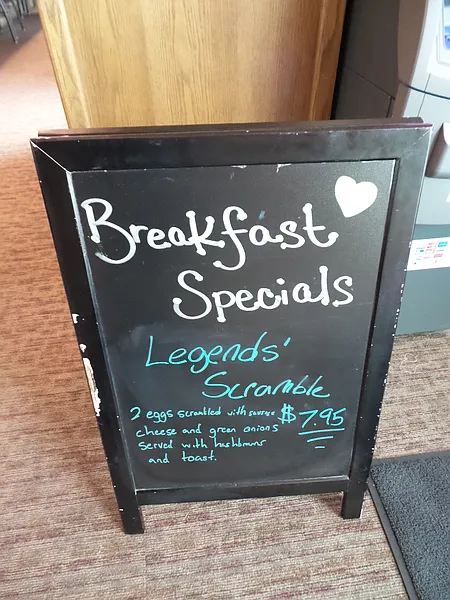 Breakfast
Specials
Legends'
Scramble
2 eggs scrambled with sausage
cheese and green onions
$7.95
served with hashbrowns
and toast.